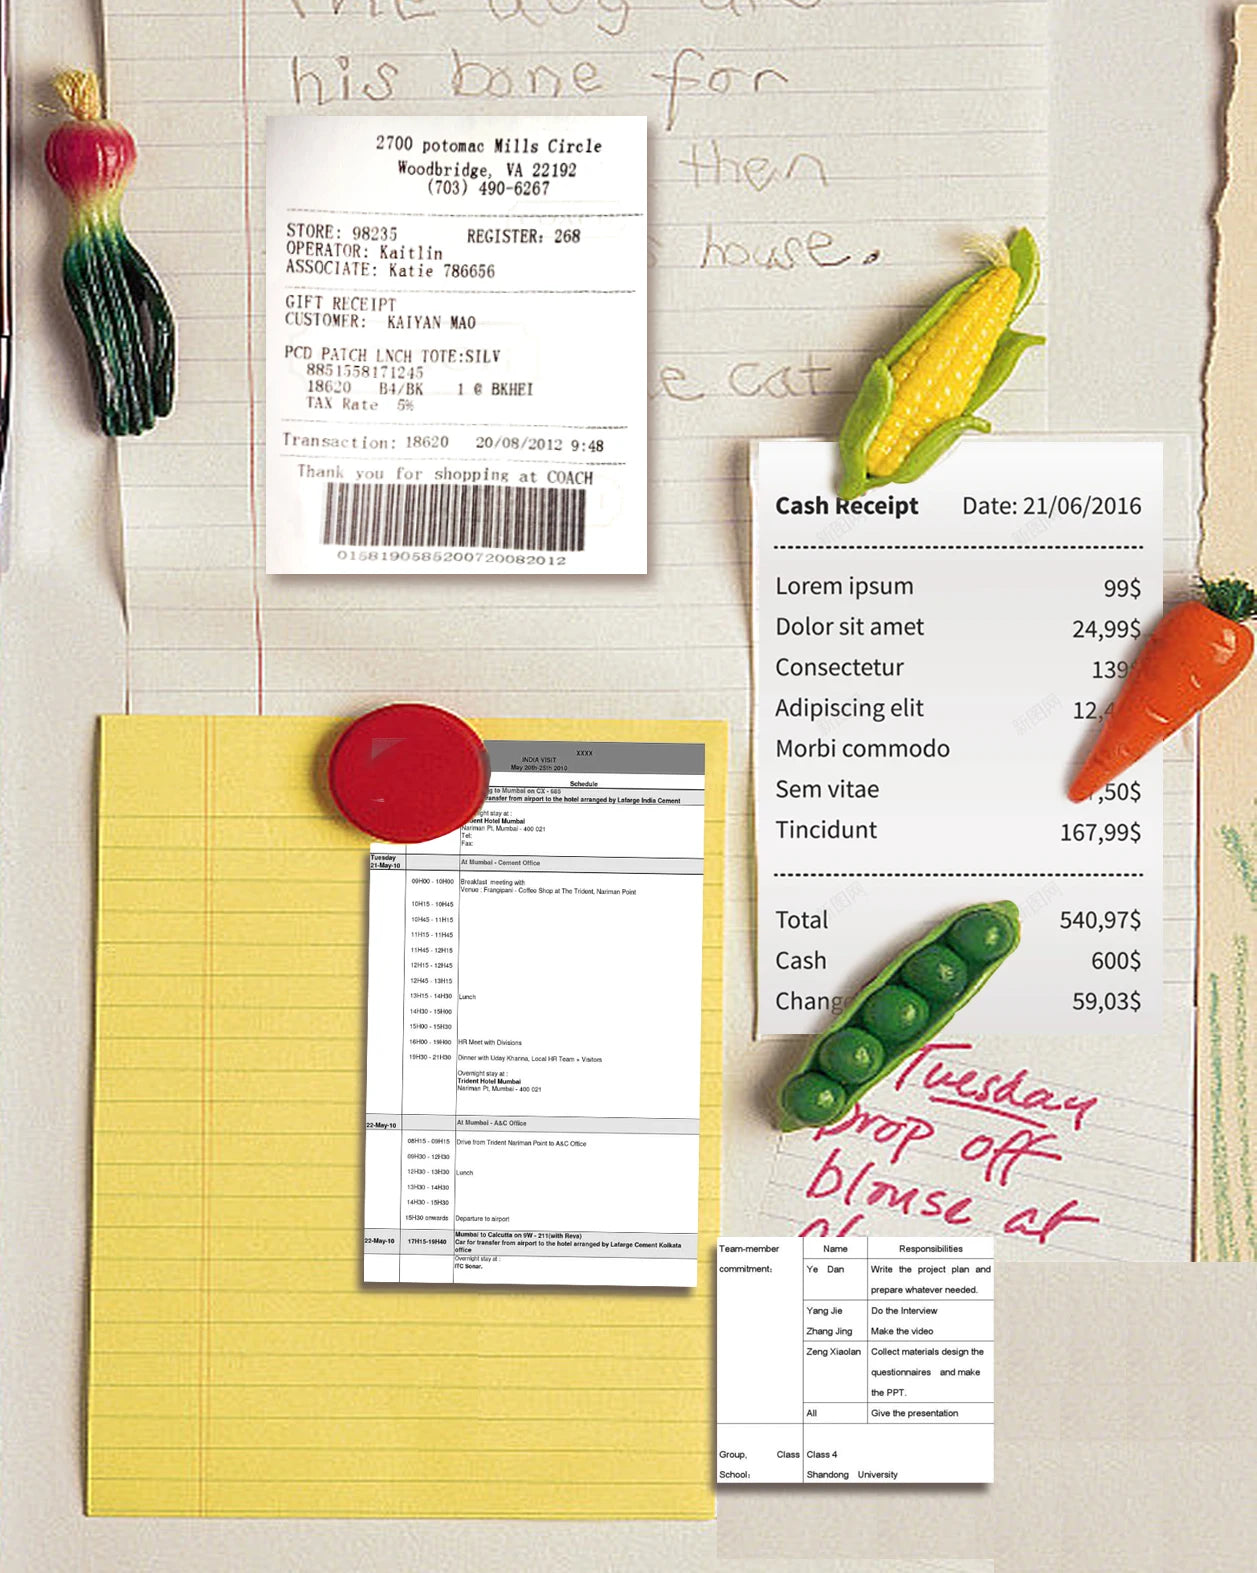 The dog ate
his bone for
then
house.
e cat
2700 potomac Mills Circle
Woodbridge, VA 22192
(703) 490-6267
STORE: 98235 REGISTER: 268
OPERATOR: Kaitlin
ASSOCIATE: Katie 786656
GIFT RECEIPT
CUSTOMER: KAIYAN MAO
PCD PATCH LNCH TOTE:SILV
8851558171245
18620 B4/BK 1 @ BKHEI
TAX Rate 5%
Transaction: 18620 20/08/2012 9:48
Thank you for shopping at COACH
0158190585200720082012
Cash Receipt Date: 21/06/2016
Lorem ipsum 99$
Dolor sit amet 24,99$
Consectetur 139$
Adipiscing elit 12,4
Morbi commodo
Sem vitae ,50$
Tincidunt 167,99$
Total 540,97$
Cash 600$
Change 59,03$
Tuesday
Drop off
blouse at
XXXX
INDIA VISIT
May 20th-25th 2010
Schedule
g to Mumbai on CX - 685
ransfer from airport to the hotel arranged by Lafarge India Cement
night stay at :
dent Hotel Mumbai
Nariman Pt, Mumbai - 400 021
Tel:
Fax:
Tuesday
21-May-10 At Mumbai - Cement Office
09H00 - 10H00 Breakfast meeting with
Venue : Frangipani - Coffee Shop at The Trident, Nariman Point
10H15 - 10H45
10H45 - 11H15
11H15 - 11H45
11H45 - 12H15
12H15 - 12H45
12H45 - 13H15
13H15 - 14H30 Lunch
14H30 - 15H00
15H00 - 15H30
16H00 - 19H00 HR Meet with Divisions
19H30 - 21H30 Dinner with Uday Khanna, Local HR Team + Visitors
Overnight stay at :
Trident Hotel Mumbai
Nariman Pt, Mumbai - 400 021
22-May-10 At Mumbai - A&C Office
08H15 - 09H15 Drive from Trident Nariman Point to A&C Office
09H30 - 12H30
12H30 - 13H30 Lunch
13H30 - 14H30
14H30 - 15H30
15H30 onwards Departure to airport
22-May-10 17H15-19H40 Mumbai to Calcutta on 9W - 211(with Reva)
Car for transfer from airport to the hotel arranged by Lafarge Cement Kolkata
office
Overnight stay at :
ITC Sonar.
Team-member Name Responsibilities
commitment: Ye Dan Write the project plan and
prepare whatever needed.
Yang Jie Do the Interview
Zhang Jing Make the video
Zeng Xiaolan Collect materials design the
questionnaires and make
the PPT.
All Give the presentation
Group, Class Class 4
School: Shandong University